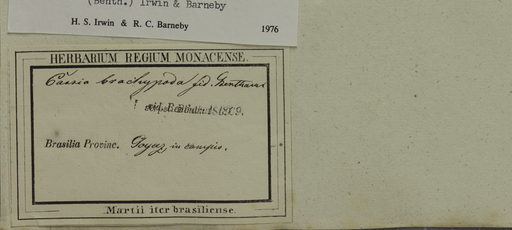 (Benth.) Irwin & Barneby
H. S. Irwin & R. C. Barneby 1976
HERBARIUM REGIUM MONACENSE.
Cassia brachypoda fid. Benthamii
Brasilia Provinc. Goyaz, in campis.
Martii iter brasiliense.